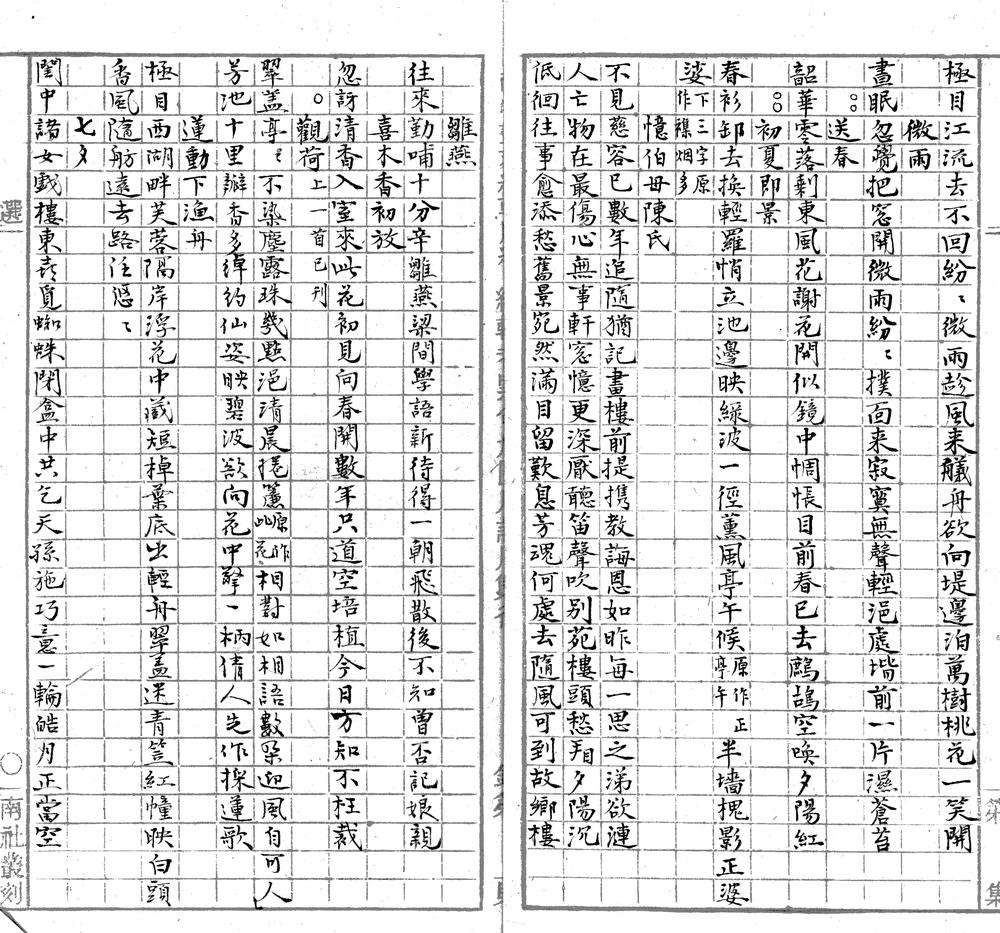 極目江流去不回紛〻微雨趁風来艤舟欲向堤邊泊萬樹桃花一笑開
微雨
晝眠忽覺把窓開微雨紛〻撲面来寂寞無聲輕浥處堦前一片濕蒼苔
送春
韶華零落剩東風花謝花開似鏡中惆悵目前春已去鷓鴣空喚夕陽紅
初夏即景
春衫卸去換輕羅悄立池邊映綠波一徑薰風亭午候原作亭午正半墻槐影正婆
娑下三字原作襍烟多
憶伯母陳氏
不見慈容已數年追隨猶記畫樓前提携教誨恩如昨每一思之涕欲漣
人亡物在最傷心無事軒窓憶更深厭聽笛聲吹別苑樓頭愁覩夕陽沉
低徊往事愈添愁舊景宛然滿目留歎息芳魂何處去隨風可到故鄉樓
雛燕
往來勤哺十分辛雛燕梁間學語新待得一朝飛散後不知曾否記娘親
喜木香初放
忽訪清香入室來此花初見向春開數年只道空培植今日方知不枉裁
觀荷上一首已刊
翠蓋亭〻不染塵露珠幾點浥清晨捲簾原作此花相對如相語數朵迎風自可人
芳池十里瓣香多綽約仙姿映碧波欲向花中擎一柄倩人先作採蓮歌
蓮動下漁舟
極目西湖畔芙蓉隔岸浮花中藏短棹葉底出輕舟翠盖迷青笠紅幢映白頭
香風隨舫遠去路任悠〻
七夕
閨中諸女戲樓東喜覓蜘蛛閉盒中共乞天孫施巧意一輪皓月正當空
選
南社叢刻
集